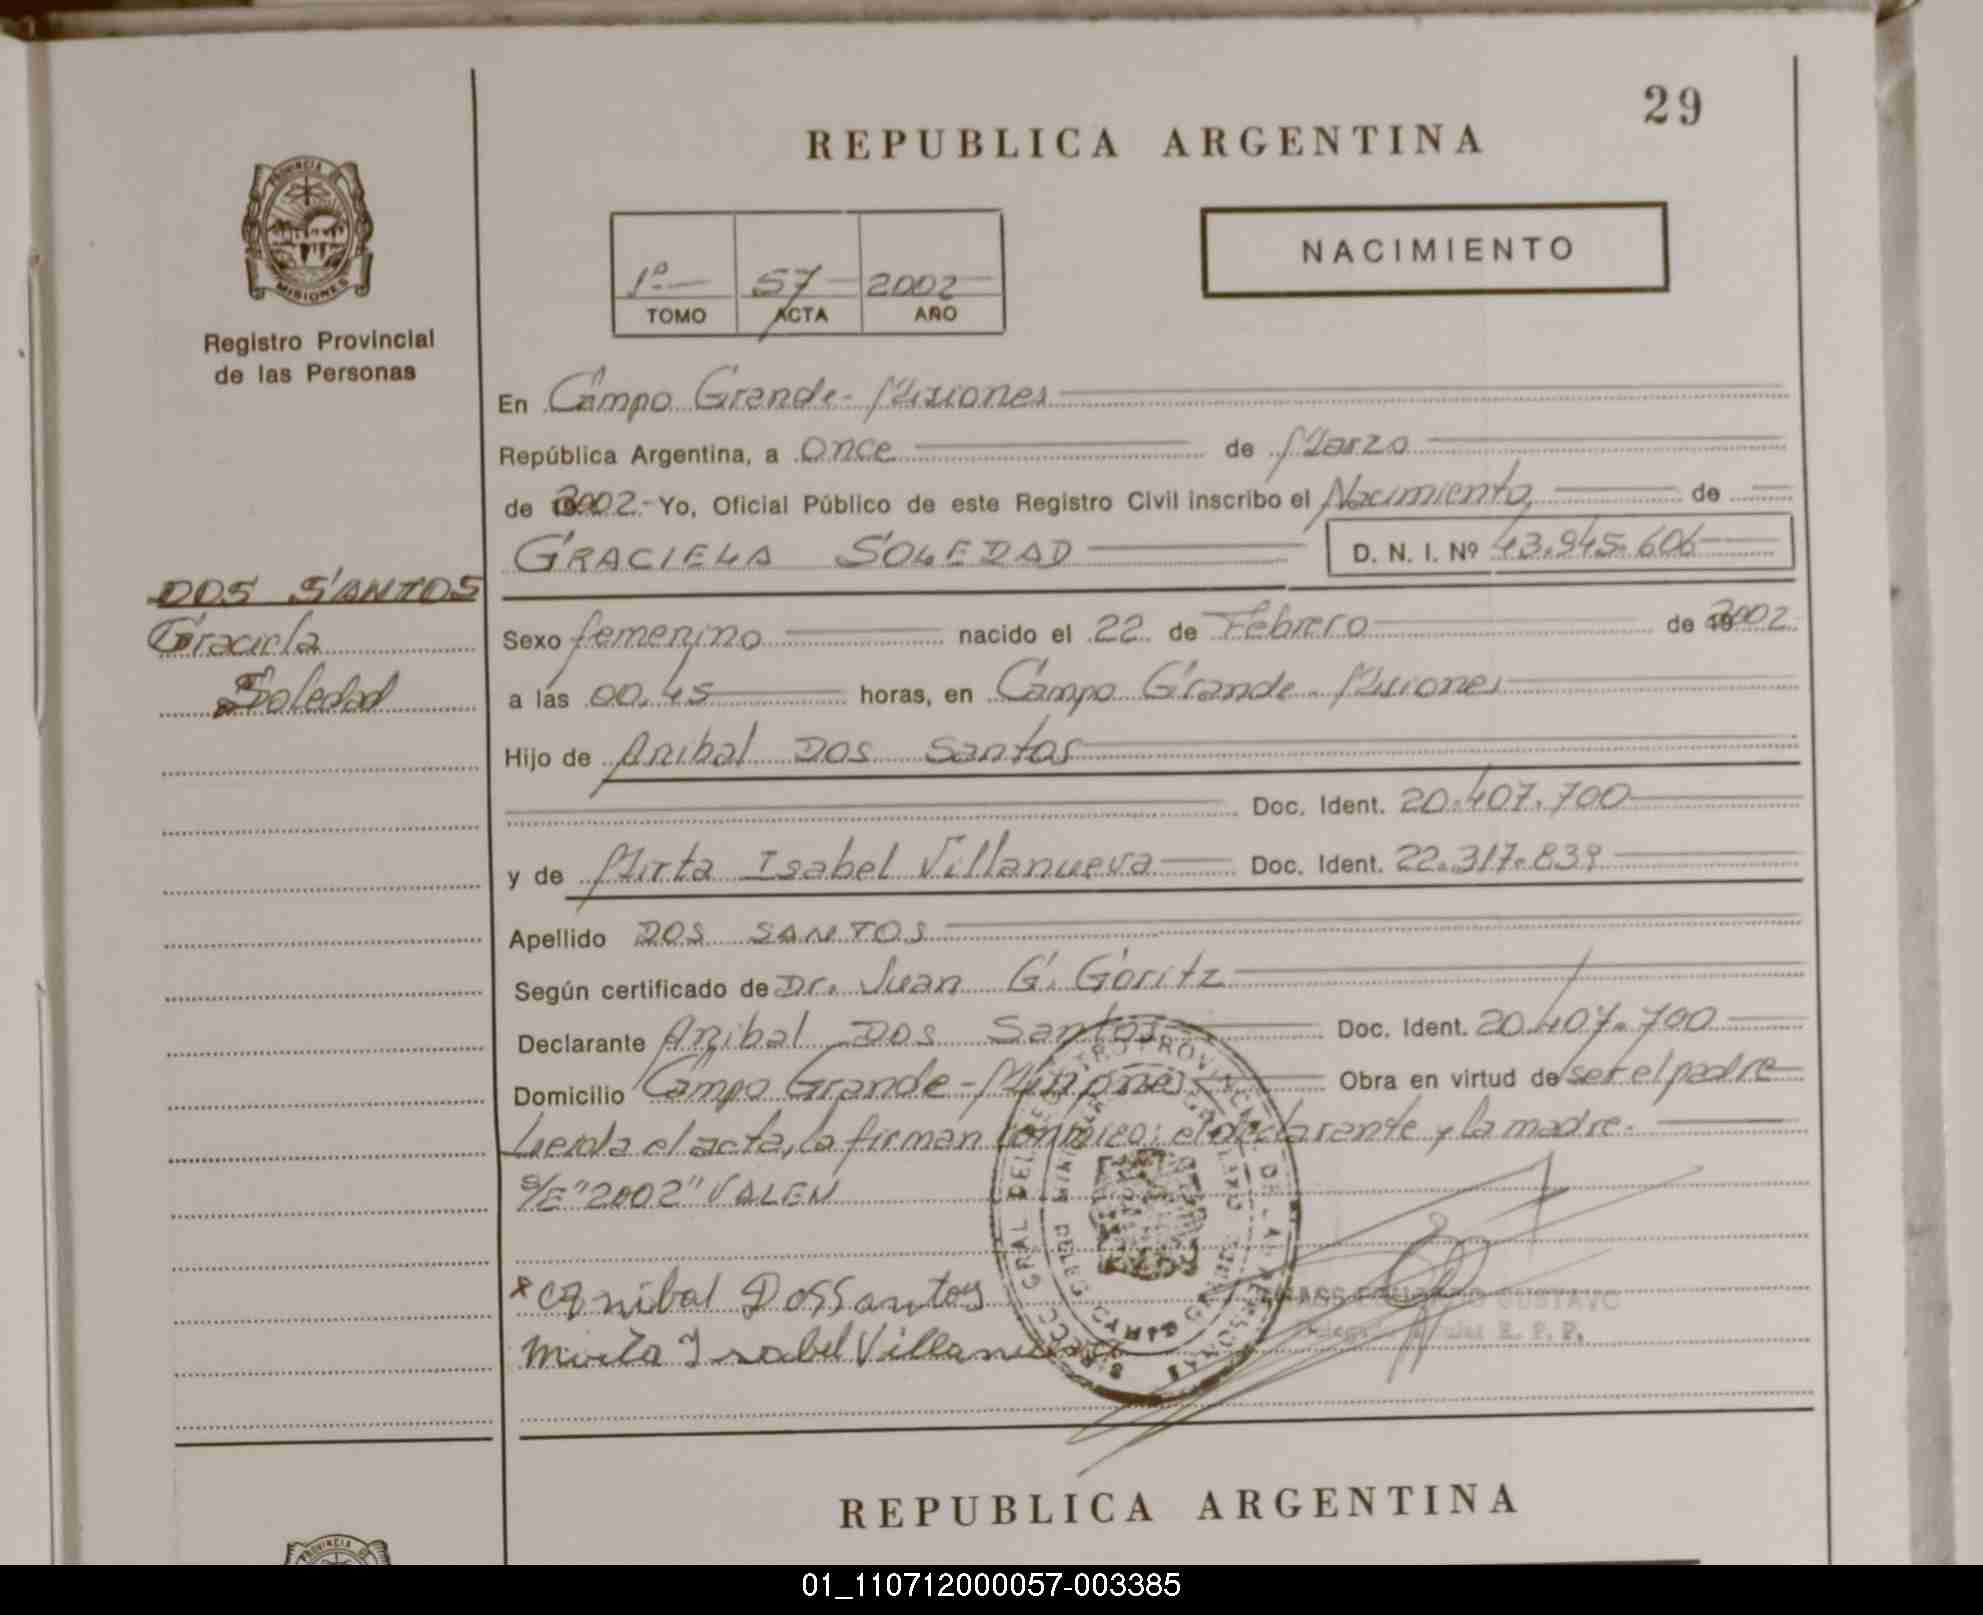 29
REPUBLICA ARGENTINA
PROVINCIA DE
MISIONES
Registro Provincial
de las Personas
1º 57 2002
TOMO ACTA AÑO
NACIMIENTO
En Campo Grande - Misiones
República Argentina, a once de Marzo
de 2002 - Yo, Oficial Público de este Registro Civil inscribo el Nacimiento de
GRACIELA SOLEDAD D. N. I. Nº 43.945.606
DOS SANTOS
Graciela
Soledad
Sexo femenino nacido el 22 de Febrero de 2002
a las 00.45 horas, en Campo Grande - Misiones
Hijo de Anibal Dos Santos
Doc. Ident. 20.407.700
y de Mirta Isabel Villanueva Doc. Ident. 22.317.839
Apellido DOS SANTOS
Según certificado de Dr. Juan G. Goritz
Declarante Anibal Dos Santos Doc. Ident. 20.407.700
Domicilio Campo Grande - Misiones Obra en virtud de ser el padre
Leida el acta, la firman conmigo: el declarante y la madre.
S/E "2002" VALEN
x Anibal Dos Santos
Mirta Isabel Villanueva
GUSTAVO
R. P. P.
REPUBLICA ARGENTINA
PROVINCIA DE
01_110712000057-003385